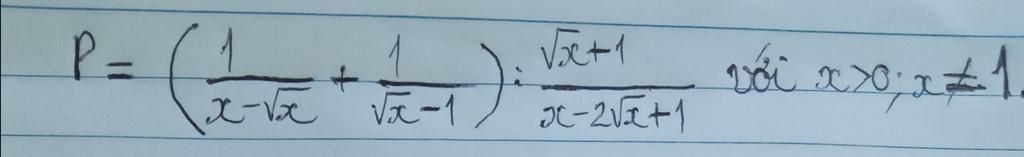 P = (1/(x-√x) + 1/(√x-1)) : (√x+1)/(x-2√x+1) với x>0; x≠1.